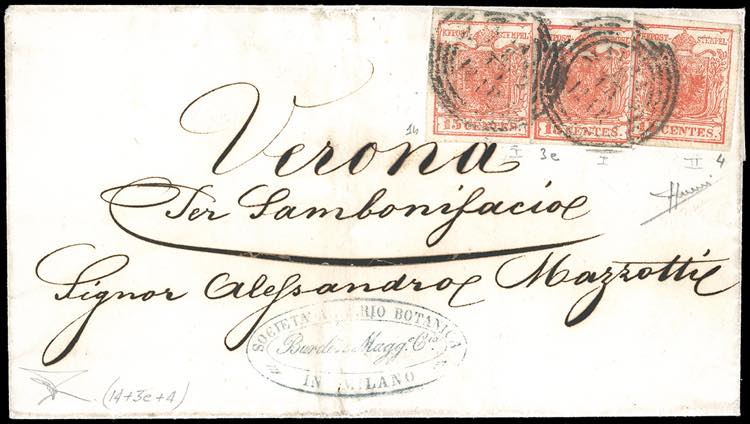 KKPOST-STEMPEL KKPOST-STEMPEL
15 CENTES. 15 CENTES. 15 CENTES.
14 I 3e I II 4
Verona
Per Sambonifacio
Signor Alessandro Mazzotti
SOCIETA BOTANICA
Burdin Magg.e C.ia
IN MILANO
(14+3e+4)